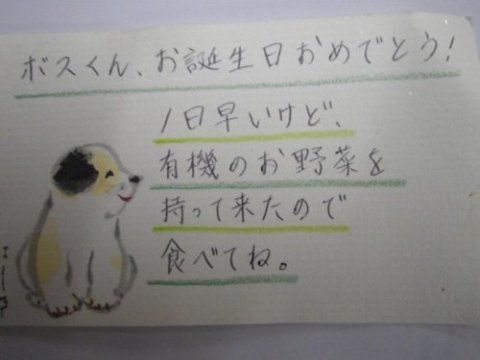 ボスくん、お誕生日おめでとう!
1日早いけど、
有機のお野菜を
持って来たので
食べてね。